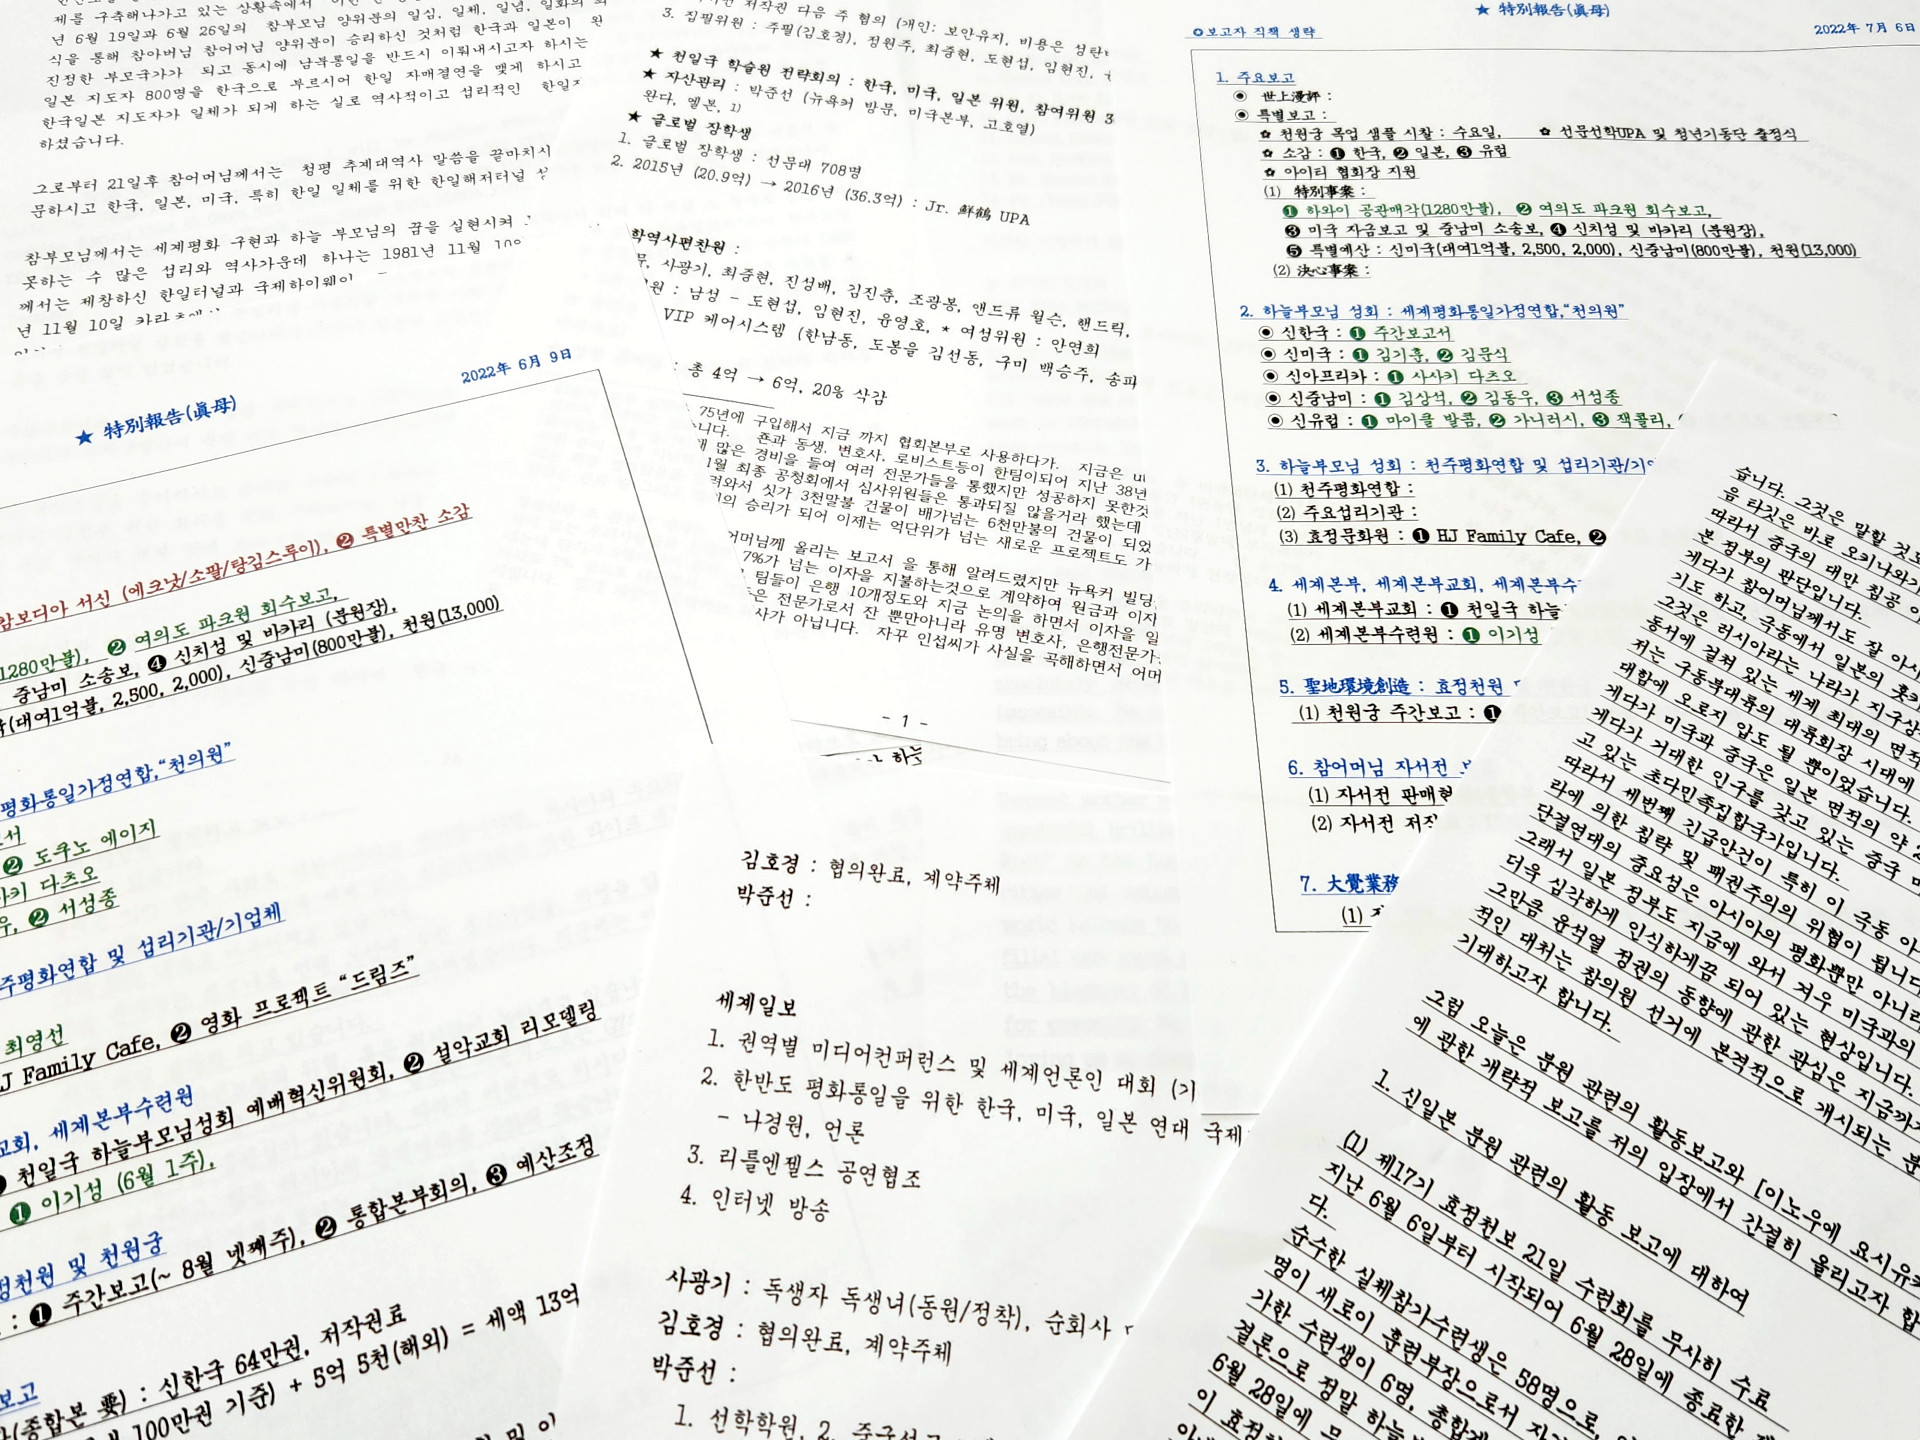 제를 구축해나가고 있는 상황속에서
년 6월 19일과 6월 26일의 참부모님 양위분의 일심, 일체, 일념, 일화의
식을 통해 참아버님 참어머님 양위분이 승리하신 것처럼 한국과 일본이
진정한 부모국가가 되고 동시에 남북통일을 반드시 이뤄내시고자 하시는
일본 지도자 800명을 한국으로 부르시어 한일 자매결연을 맺게 하시고
한국일본 지도자가 일체가 되게 하는 실로 역사적이고 섭리적인 한일
하셨습니다.
그로부터 21일후 참어머님께서는 청평 추계대역사 말씀을 끝마치시
문하시고 한국, 일본, 미국, 특히 한일 일체를 위한 한일해저터널
참부모님께서는 세계평화 구현과 하늘 부모님의 꿈을 실현시켜
못하는 수 많은 섭리와 역사가운데 하나는 1981년 11월 10일
께서는 제창하신 한일터널과 국제하이웨이
년 11월 10일
저작권 다음 주 협의 (개인: 보안유지, 비용은
3. 집필위원 : 주필(김호경), 정원주, 최중현, 도현섭, 임현진,
★ 천일국 학술원 전략회의 : 한국, 미국, 일본 위원, 참여위원 3
★ 자산관리 : 박준선 (뉴욕커 방문, 미국본부, 고호열)
완다, 엘본, 1)
★ 글로벌 장학생
1. 글로벌 장학생 : 선문대 708명
2. 2015년 (20.9억) → 2016년 (36.3억) : Jr. 鮮鶴 UPA
학역사편찬원 :
사광기, 최중현, 진성배, 김진춘, 조광봉, 앤드류 윌슨, 핸드릭,
원 : 남성 - 도현섭, 임현진, 윤영호, * 여성위원 : 안연희
VIP 케어시스템 (한남동, 도봉을 김선동, 구미 백승주, 송파
: 총 4억 → 6억, 20% 삭감
75년에 구입해서 지금 까지 협회본부로 사용하다가. 지금은
니다. 죤과 동생, 변호사, 로비스트등이 한팀이되어 지난 38년
많은 경비를 들여 여러 전문가들을 통했지만 성공하지 못한것
1월 최종 공청회에서 심사위원들은 통과되질 않을거라 했는데
려와서 싯가 3천만불 건물이 배가넘는 6천만불의 건물이 되었
의 승리가 되어 이제는 억단위가 넘는 새로운 프로젝트도 가
어머님께 올리는 보고서 을 통해 알려드렸지만 뉴욕커 빌딩
7%가 넘는 이자을 지불하는것으로 계약하여 원금과 이자
팀들이 은행 10개정도와 지금 논의을 하면서 이자을 일
은 전문가로서 잔 뿐만아니라 유명 변호사, 은행전문가
사가 아닙니다. 자꾸 인섭씨가 사실을 곡해하면서 어머
- 1 -
★ 特別報告(眞母)
✪보고자 직책 생략
2022년 7월 6일
1. 주요보고
◉ 世上漫評 :
◉ 특별보고 :
✿ 천원궁 목업 샘플 시찰 : 수요일, ✿ 선문선학UPA 및 청년기동단 출정식
✿ 소감 : ❶ 한국, ❷ 일본, ❸ 유럽
✿ 아이티 협회장 지원
(1) 特別事案 :
❶ 하와이 공관매각(1280만불), ❷ 여의도 파크원 회수보고,
❸ 미국 자금보고 및 중남미 소송보, ❹ 신치성 및 바카리 (분원장),
❺ 특별예산 : 신미국(대여1억불, 2,500, 2,000), 신중남미(800만불), 천원(13,000)
(2) 決心事案 :
2. 하늘부모님 성회 : 세계평화통일가정연합,“천의원”
◉ 신한국 : ❶ 주간보고서
◉ 신미국 : ❶ 김기훈, ❷ 김문식
◉ 신아프리카 : ❶ 사사키 다츠오
◉ 신중남미 : ❶ 김상석, ❷ 김동우, ❸ 서성종
◉ 신유럽 : ❶ 마이클 발콤, ❷ 가니러시, ❸ 잭콜리,
3. 하늘부모님 성회 : 천주평화연합 및 섭리기관/기
(1) 천주평화연합 :
(2) 주요섭리기관 :
(3) 효정문화원 : ❶ HJ Family Cafe, ❷
4. 세계본부, 세계본부교회, 세계본부수
(1) 세계본부교회 : ❶ 천일국 하늘
(2) 세계본부수련원 : ❶ 이기성
5. 聖地環境創造 : 효정천원
(1) 천원궁 주간보고 : ❶
6. 참어머님 자서전
(1) 자서전 판매현
(2) 자서전 저작
7. 大覺業務
(1)
2022년 6월 9일
★ 特別報告(眞母)
캄보디아 서신 (에크낫/소팔/탕김스루이), ❷ 특별만찬 소감
1280만불), ❷ 여의도 파크원 회수보고,
중남미 소송보, ❹ 신치성 및 바카리 (분원장),
(대여1억불, 2,500, 2,000), 신중남미(800만불), 천원(13,000)
평화통일가정연합,“천의원”
서
❷ 도쿠노 에이지
사키 다츠오
우, ❷ 서성종
주평화연합 및 섭리기관/기업체
최영선
J Family Cafe, ❷ 영화 프로젝트 “드림즈”
교회, 세계본부수련원
천일국 하늘부모님성회 예배혁신위원회, ❷ 설악교회 리모델링
❶ 이기성 (6월 1주),
정천원 및 천원궁
: ❶ 주간보고(~ 8월 넷째주), ❷ 통합본부회의, ❸ 예산조정
보고
(종합본 要) : 신한국 64만권, 저작권료
100만권 기준) + 5억 5천(해외) = 세액 13억
하늘
김호경 : 협의완료, 계약주체
박준선 :
세계일보
1. 권역별 미디어컨퍼런스 및 세계언론인 대회 (기
2. 한반도 평화통일을 위한 한국, 미국, 일본 연대 국제
- 나경원, 언론
3. 리틀엔젤스 공연협조
4. 인터넷 방송
사광기 : 독생자 독생녀(동원/정착), 순회사
김호경 : 협의완료, 계약주체
박준선 :
1. 선학학원, 2.
습니다. 그것은 말할 것도
음 타깃은 바로 오키나와가
따라서 중국의 대만 침공
본 정부의 판단입니다.
게다가 참어머님께서도 잘 아시
기도 하고, 극동에서 일본의
그것은 러시아라는 나라가 지구상
동서에 걸쳐 있는 세계 최대의 면적
저는 구동부대륙의 대륙회장 시대에
대함에 오로지 압도 될 뿐이었습니다.
게다가 미국과 중국은 일본 면적의 약
게다가 거대한 인구를 갖고 있는 중국
고 있는 초다민족집합국가입니다.
따라서 세번째 긴급안건이 특히 이 극동 아
라에 의한 침략 및 패권주의의 위협이 됩니다
단결연대의 중요성은 아시아의 평화뿐만 아니라
그래서 일본 정부도 지금에 와서 겨우 미국과의
더욱 심각하게 인식하게끔 되어 있는 현상입니다.
그만큼 윤석열 정권의 동향에 관한 관심은 지금까지
적인 대처는 참의원 선거에 본격적으로 개시되는
기대하고자 합니다.
그럼 오늘은 분원 관련의 활동보고와 [이노우에 요시유키
에 관한 개략적 보고를 저의 입장에서 간결히 올리고자 합
1. 신일본 분원 관련의 활동 보고에 대하여
(1) 제17기 효정천보 21일 수련회를 무사히 수료
지난 6월 6일부터 시작되어 6월 28일에 종료한
다.
순수한 실체참가수련생은 58명으로,
명이 새로이 훈련부장으로서
가한 수련생이 6명, 총합계
결론으로 정말 하늘
6월 28일에
이 효정